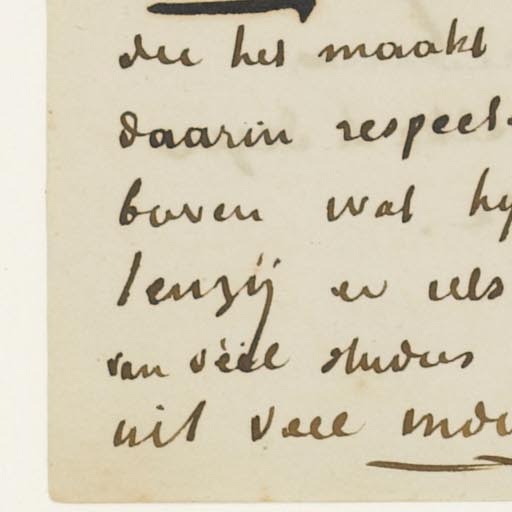 die het maakt
daarin respect
boven wat hy
tenzij er iets
van véél studies
uit veel indi